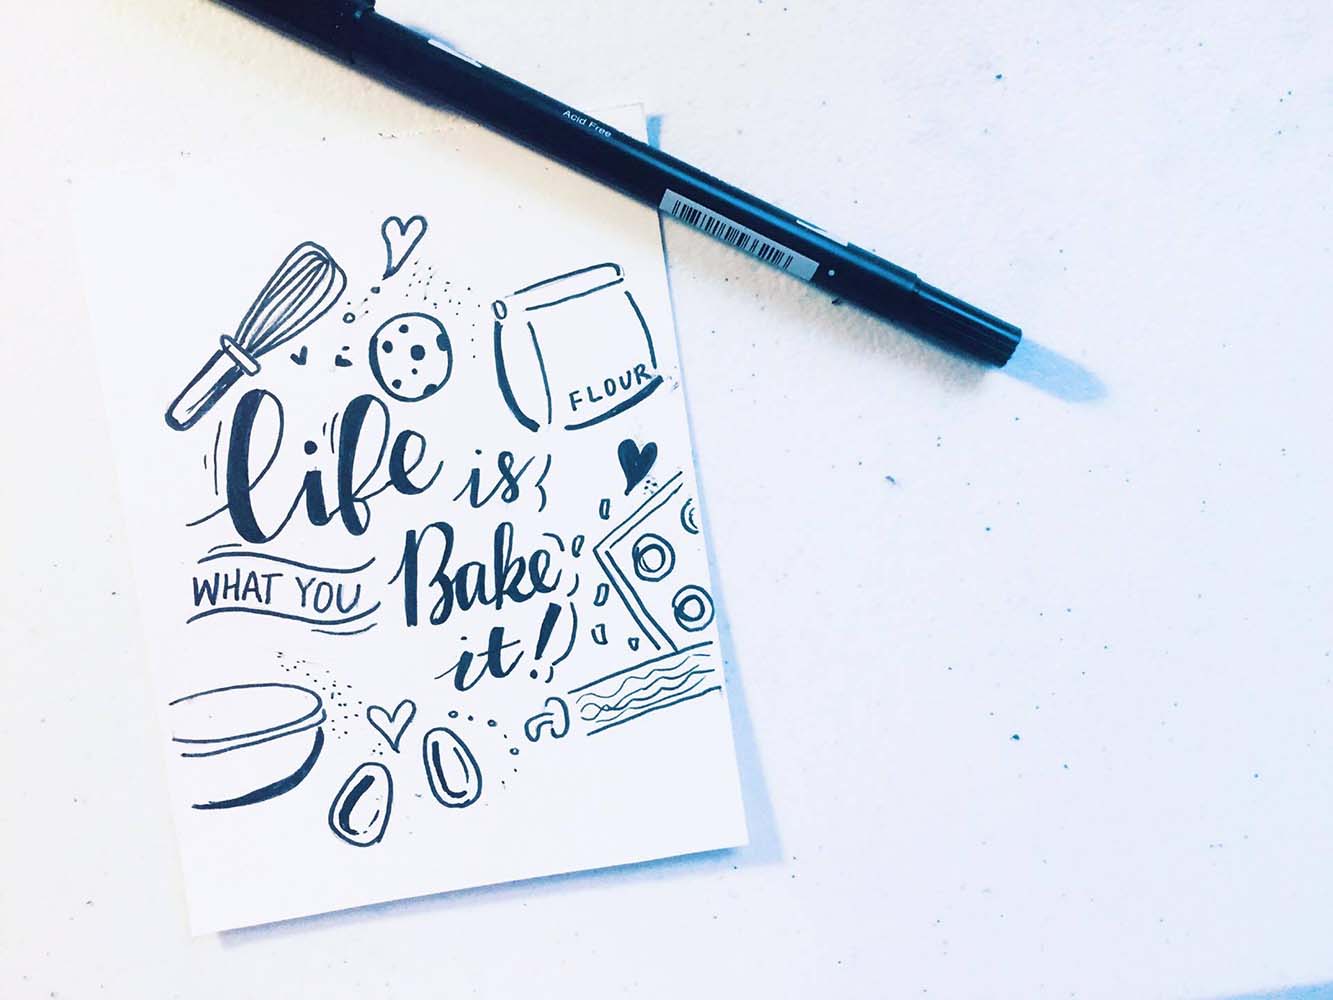 Acid Free
FLOUR
life is
WHAT YOU Bake
it!